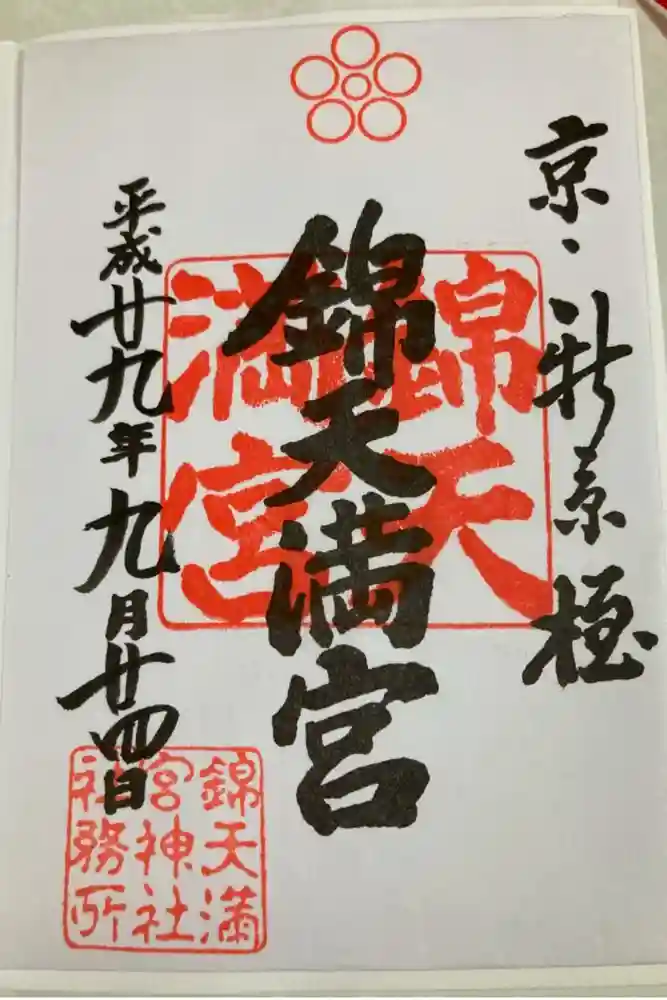 京・新京極
錦天満宮
錦天
満宮
平成廿九年九月廿四日
錦天満
宮神社
社務所